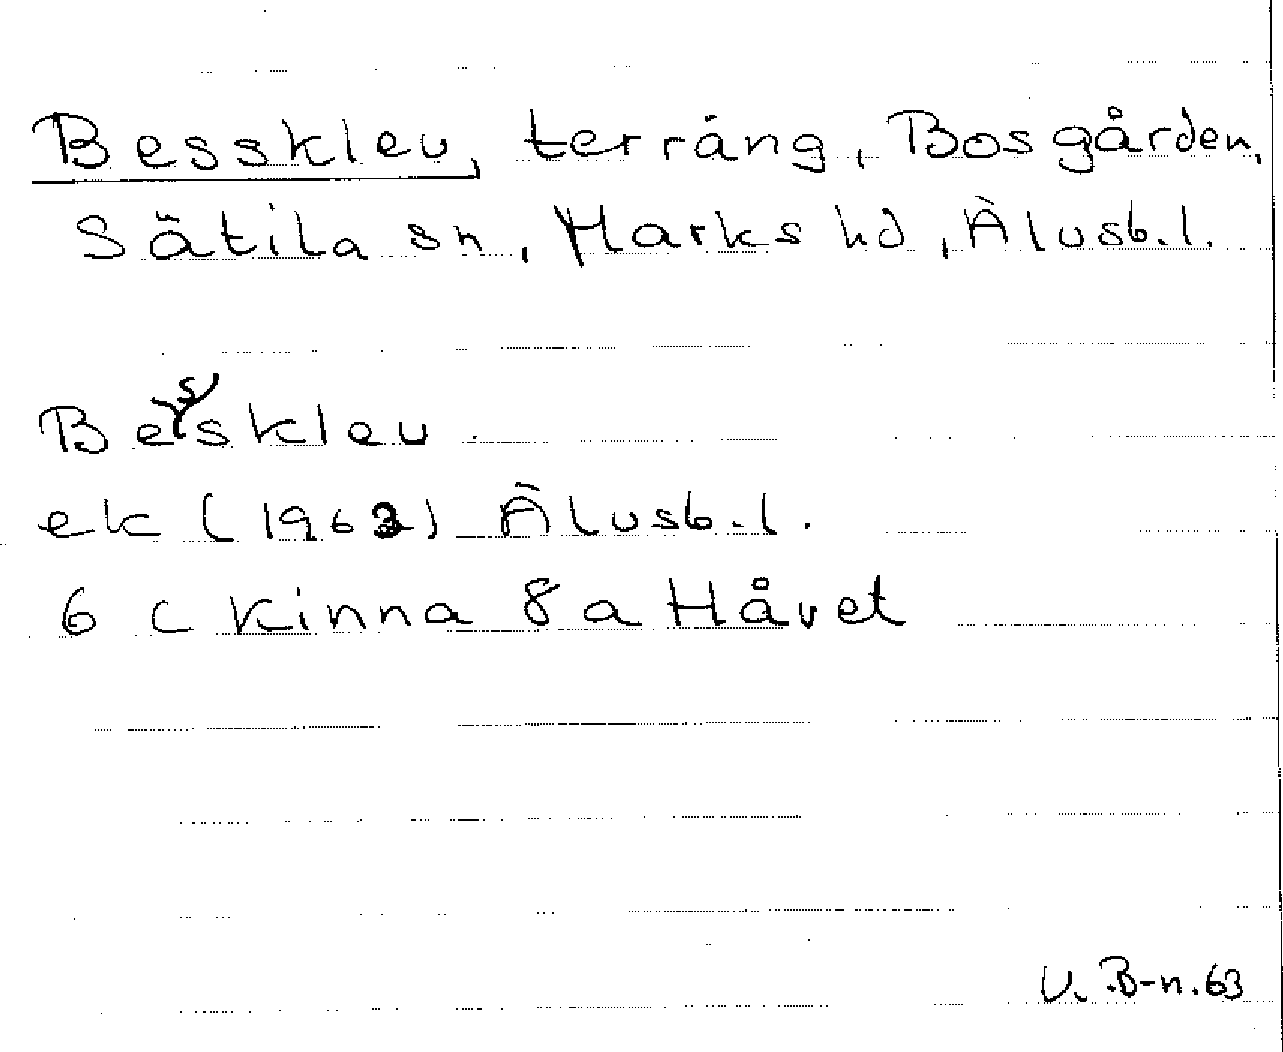 Bessklev, terräng, Bosgården,
Sätila sn, Marks hd, Älvsb. l.
Bessklev
ek (1962) Älvsb. l.
6 C Kinna 8 a Håvet
V. B-n. 63